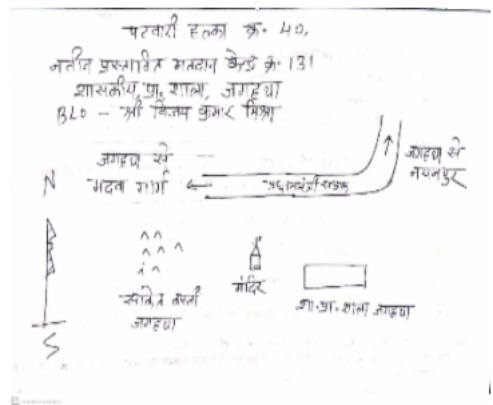 पटवारी हल्का क्र. 40,
नवीन प्रस्तावित मतदान केन्द्र क्र. 131
शासकीय प्रा. शाला, जगहथा
BLO - श्री विजय कुमार मिश्रा
जगहथा से
मदवा मार्ग
प्रधानमंत्री सड़क
जगहथा से
नयनपुर
N
S
बस्ती
जगहथा
मंदिर
शा. प्रा. शाला जगहथा